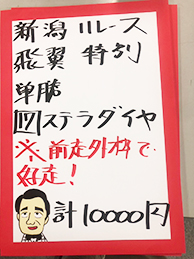 新潟11レース
飛翼特別
単勝
⑰ステラダイヤ
※前走外枠で
好走!
計10000円